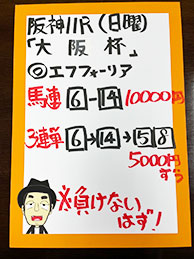 阪神11R(日曜)
「大阪杯」
◎エフフォーリア
馬連 6-4 10000円
3連単 6→4→5 8
5000円
ずつ
※負けない
はず!